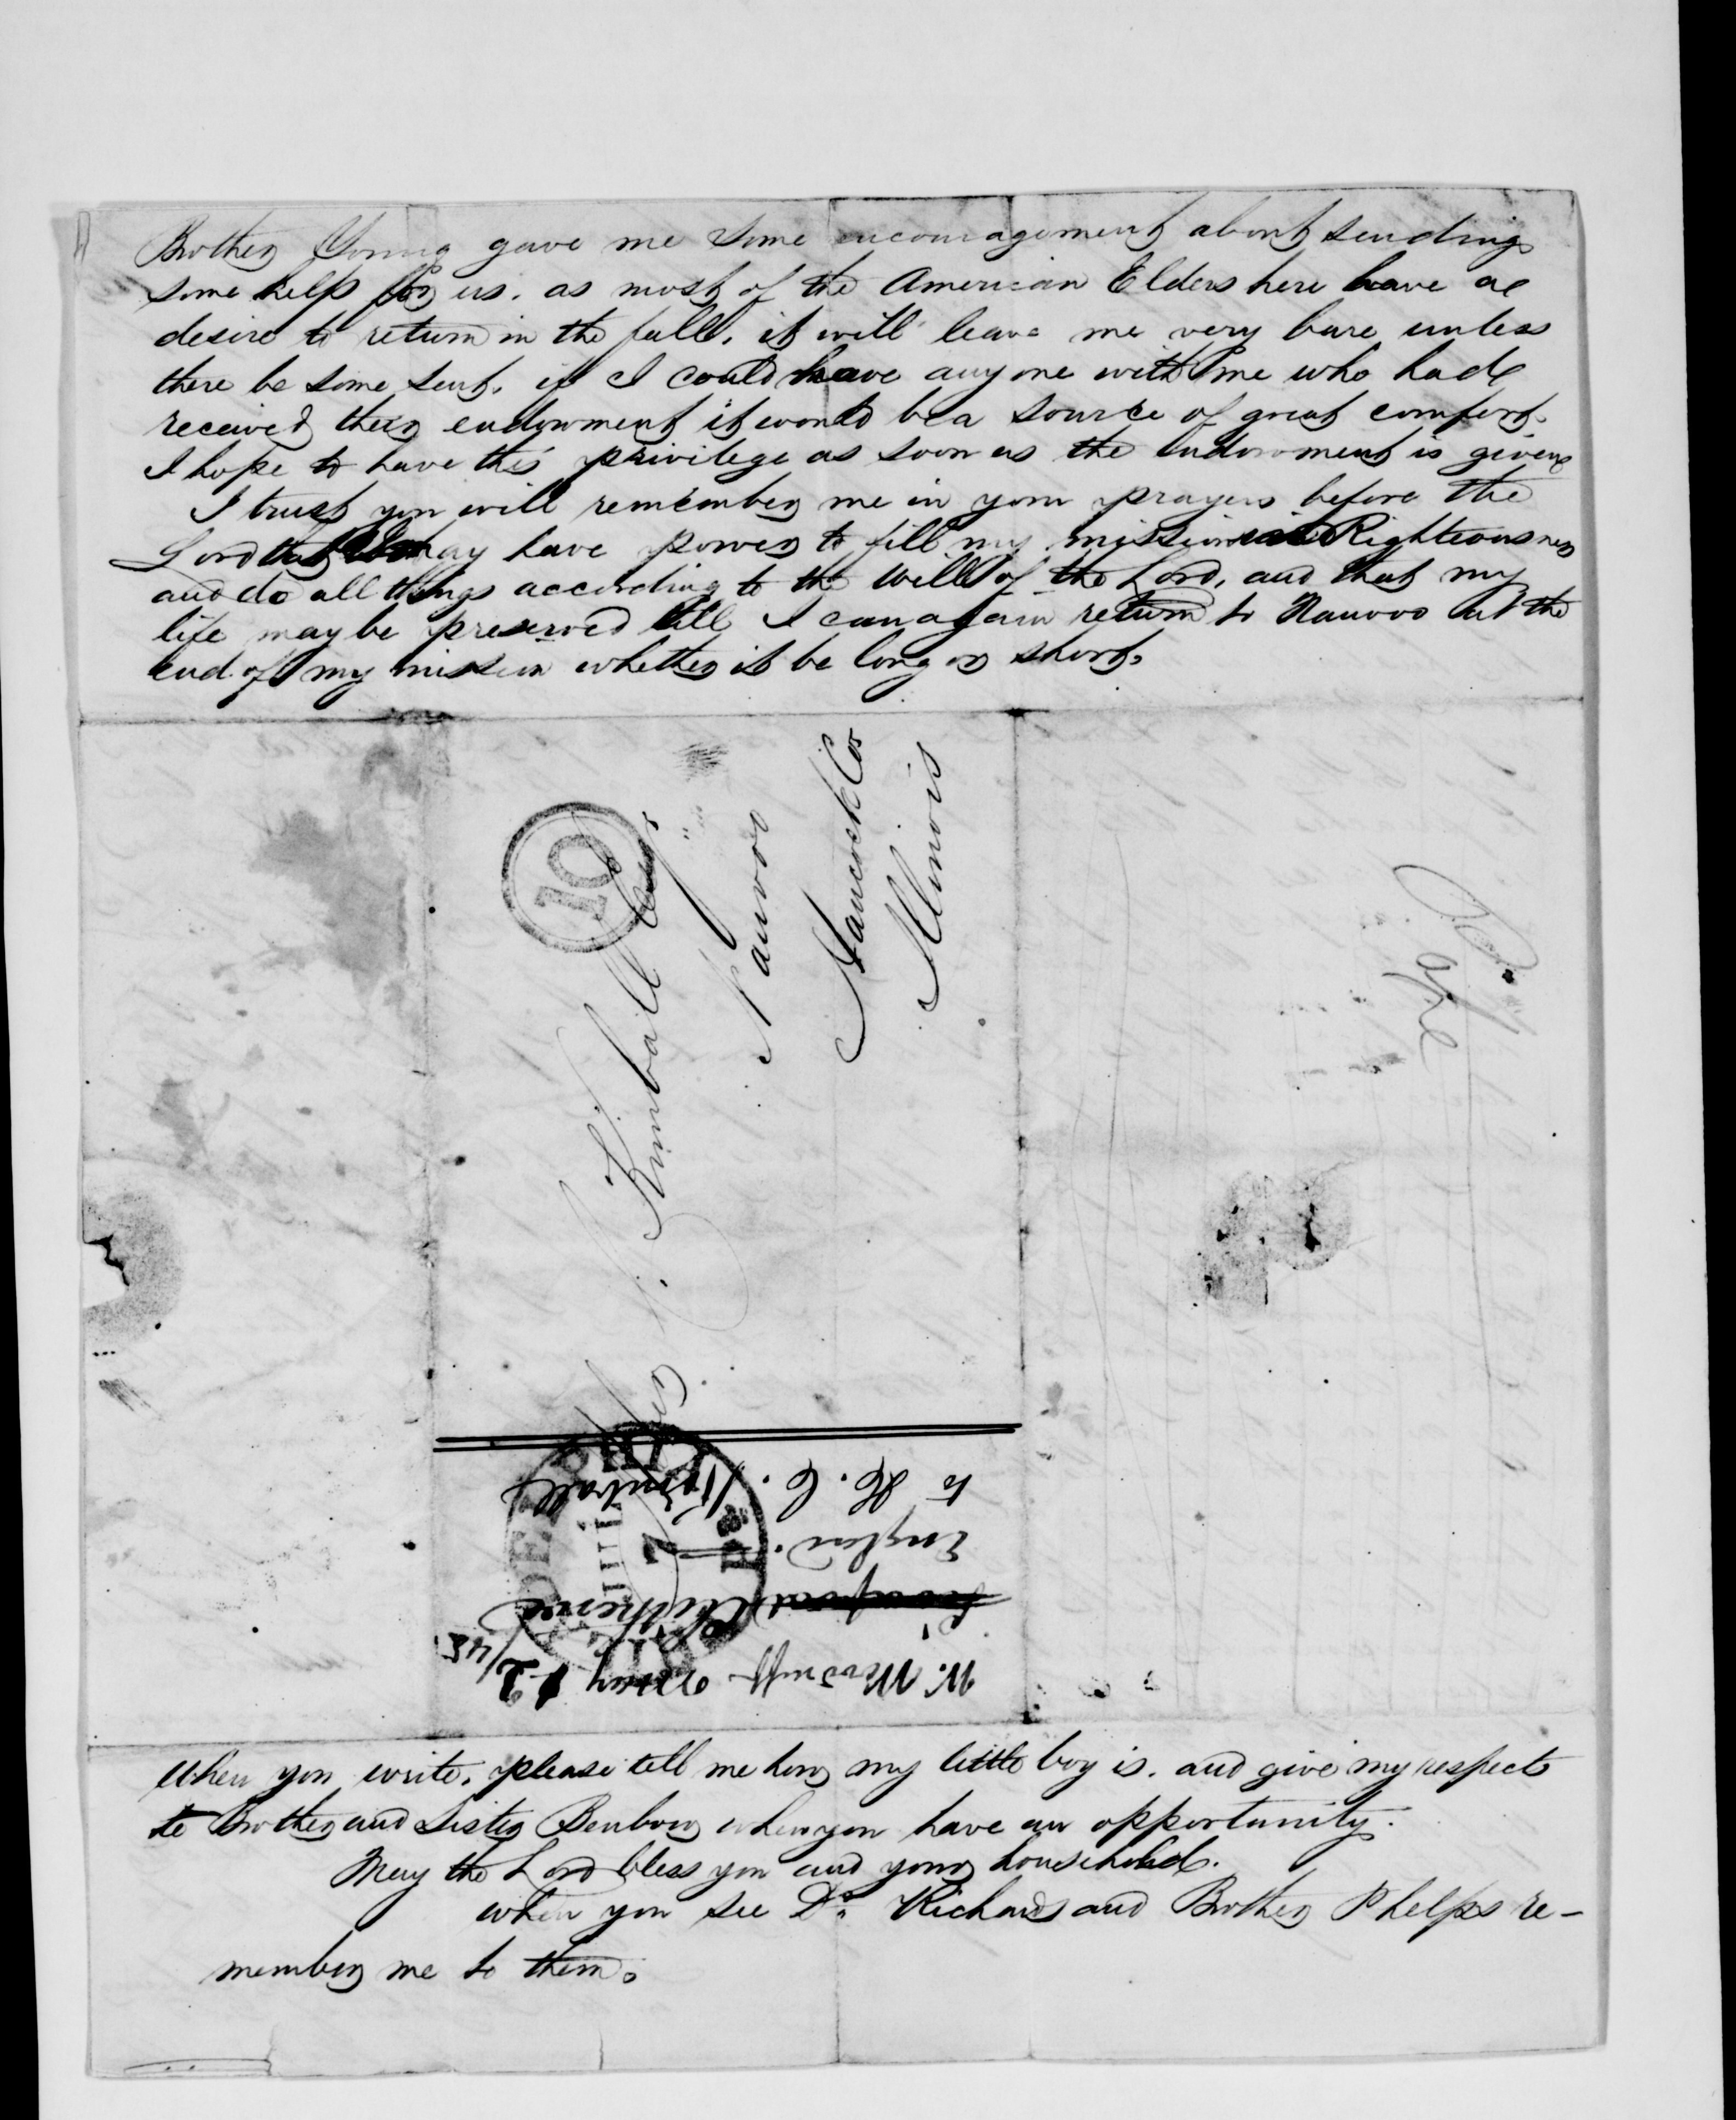 Brother Young gave me some encouragement about sending
some help for us. as most of the American Elders here have a
desire to return in the fall. it will leave me very bare unless
there be some sent. if I could have any one with me who had
received their endowment it would be a source of great comfort.
I hope to have this privilege as soon as the endowment is given
I trust you will remember me in your prayers before the
Lord that I may have power to fill my mission in Righteousness
and do all things according to the will of the Lord, and that my
life may be preserved till I can again return to Nauvoo at the
end of my mission whether it be long or short.
10
Kimball Esqr
Nauvoo
Hancock Co
Illinois
W. Woodruff
England.
to H. C. Kimball
PHILADELPHIA
JUN
7
When you write, please tell me how my little boy is. and give my respects
to Brother and Sister Benbow when you have an opportunity.
May the Lord bless you and your household.
when you see Dr. Richards and Brother Phelps re-
member me to them.